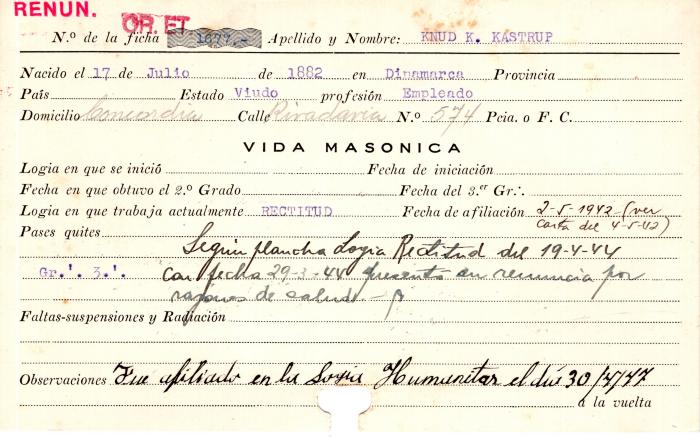 RENUN.
OR. ET
N.º de la ficha 1677.- Apellido y Nombre: KNUD K. KASTRUP
Nacido el 17 de Julio de 1882 en Dinamarca Provincia
País Estado Viudo profesión Empleado
Domicilio Concordia Calle Rivadavia N.º 574 Pcia. o F. C.
VIDA MASONICA
Logia en que se inició Fecha de iniciación
Fecha en que obtuvo el 2.º Grado Fecha del 3.er Gr∴
Logia en que trabaja actualmente RECTITUD Fecha de afiliación 2-5-1942 (ver
carta del 4-5-42)
Pases quites
Según plancha Logia Rectitud del 19-4-44
Gr.'. 3.'. Con fecha 29-3-44 presentó su renuncia por
razones de salud.-
Faltas-suspensiones y Radiación
Observaciones Fue afiliado en la Logia Humanitas el día 30/4/47
a la vuelta